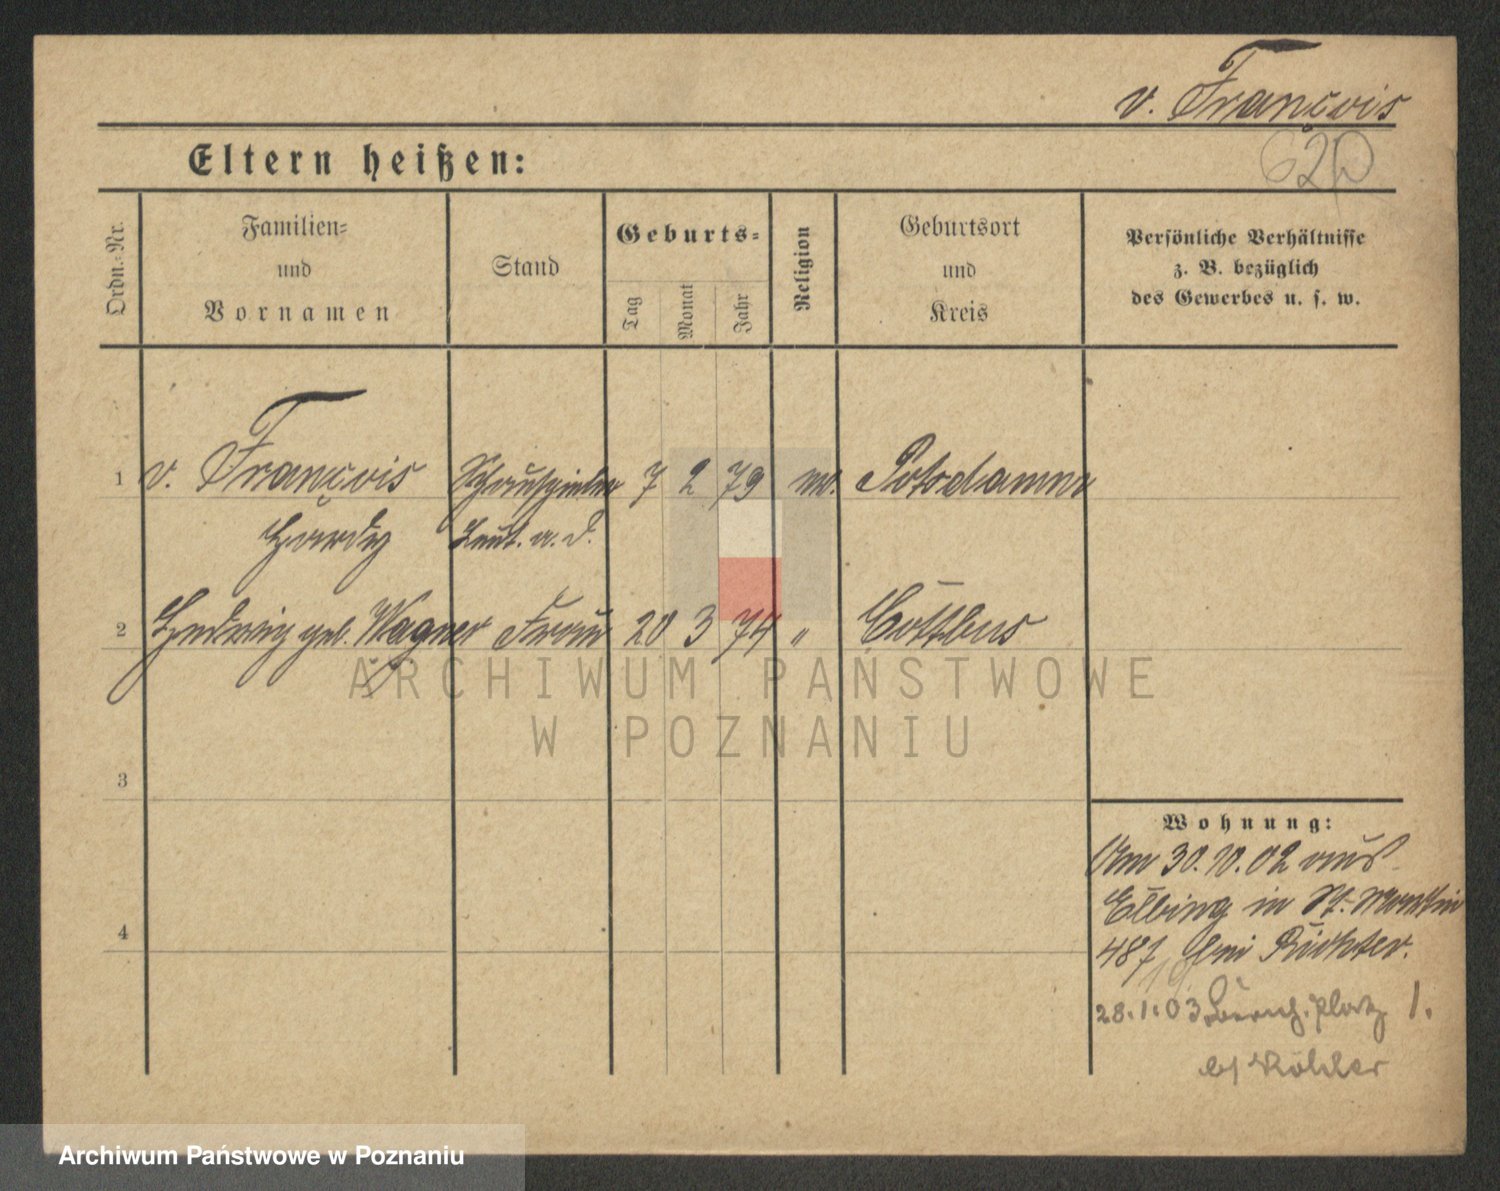 v. François
Eltern heißen:
Ordn.-Nr.
Familien- und Vornamen
Stand
Geburts-
Tag
Monat
Jahr
Religion
Geburtsort und Kreis
Persönliche Verhältnisse
z. B. bezüglich
des Gewerbes u. s. w.
1 v. François Schauspieler 7 2 79 ev. Potsdamm
Leut. a. D.
2 Hedwig geb. Wagner Frau 20 3 74 " Cottbus
ARCHIWUM PAŃSTWOWE
W POZNANIU
3
4
Wohnung:
Am 30. 10. 02 aus
Elbing in St. Martin
487 bei Richter.
28.1.03 platz 1.
b/ Köhler
Archiwum Państwowe w Poznaniu